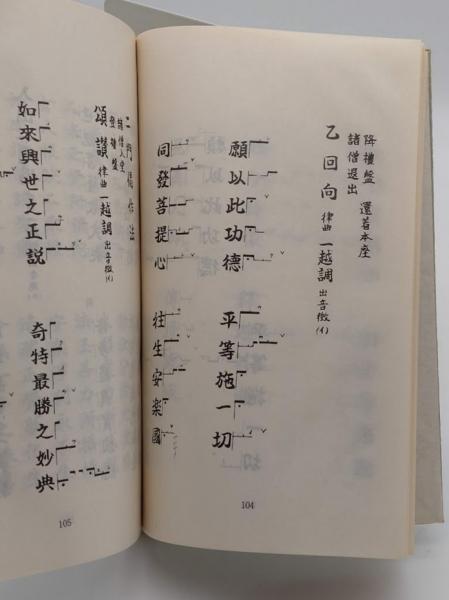 降禮盤 還着本座
諸僧退出
乙回向 律曲 一越調 出音徴(イ)
願以此功德
平等施一切
同發菩提心
往生安楽國
104
二門偈作法
諸僧入堂
登禮盤
頌讃 律曲 一越調 出音徴(イ)
如來興世之正説
奇特最勝之妙典
105